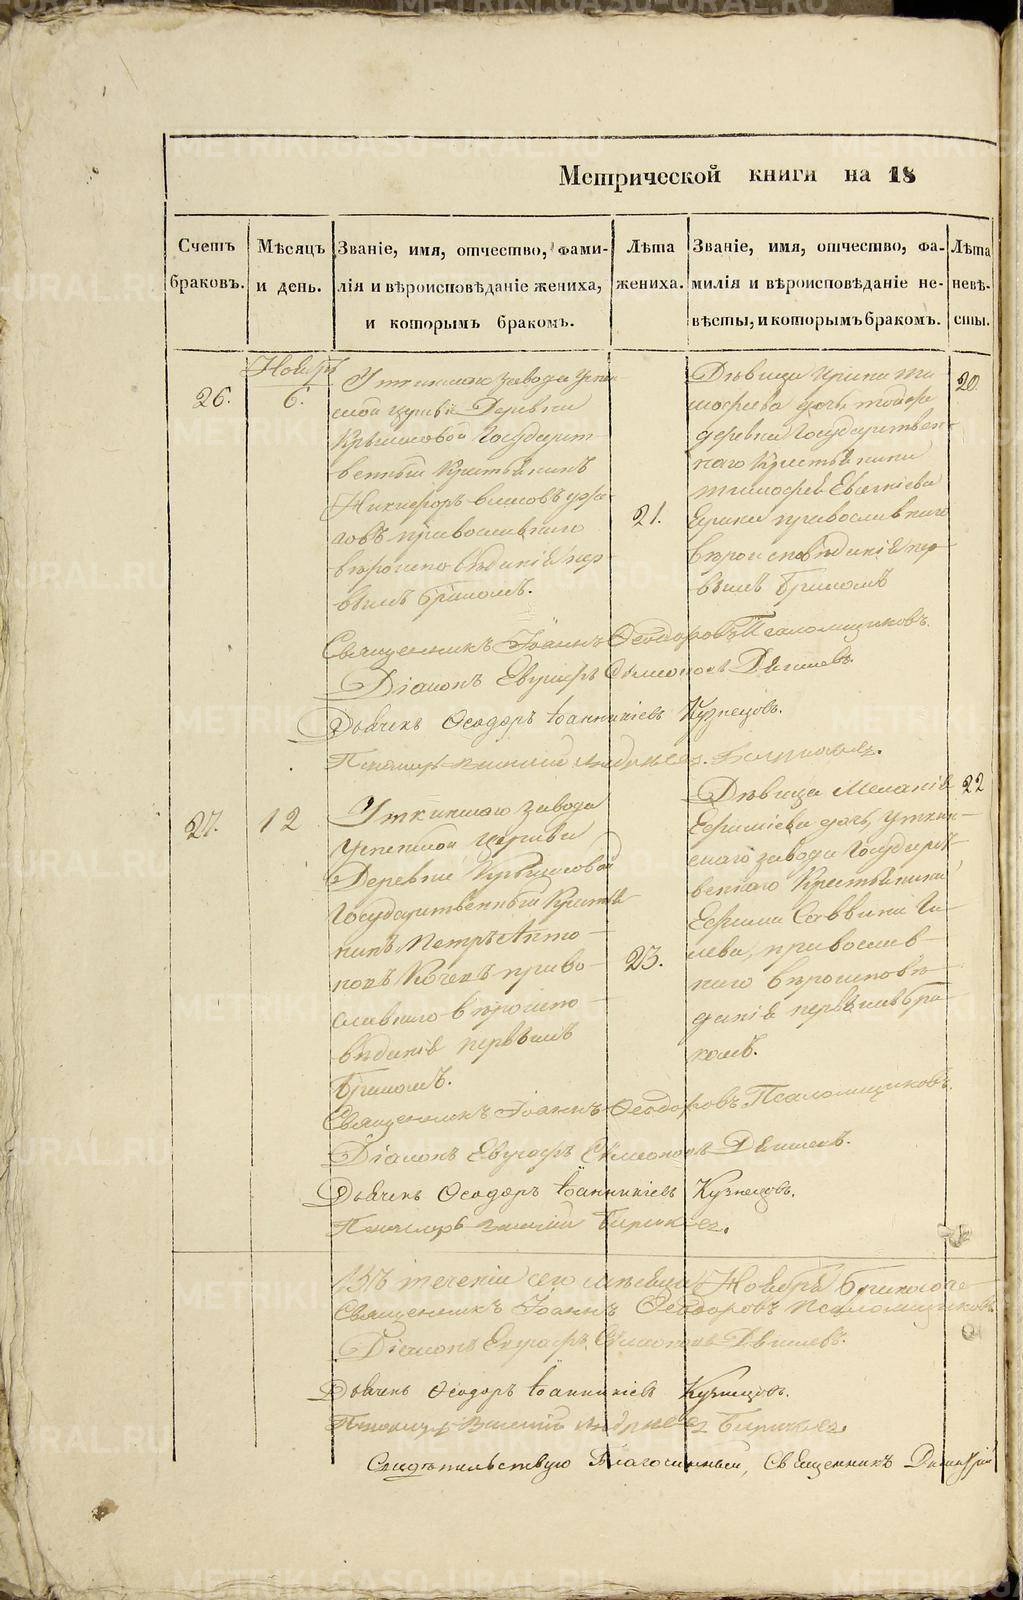 Метрической книги на 18
Счетъ браковъ.
Мѣсяцъ и день.
Званіе, имя, отчество, фами-
лія и вѣроисповѣданіе жениха,
и которымъ бракомъ.
Лѣта жениха.
Званіе, имя, отчество, фа-
милія и вѣроисповѣданіе не-
вѣсты, и которымъ бракомъ.
Лѣта невѣ-
сты.
Ноябрь
26.
6.
Уткинскаго завода Успен-
ской церкви Деревни
Крылосовой Государст-
венный Крестьянинъ
Никифоръ
православнаго
вѣроисповѣданія пер-
вымъ бракомъ.
21.
Дѣвица Ирина Ти-
мофеева дочь тойже
деревни Государствен-
наго Крестьянина
Тимофея
православнаго
вѣроисповѣданія пер-
вымъ бракомъ
20.
Священникъ Іоаннъ Ѳеодоровъ Псаломщиковъ.
Діаконъ Евграфъ Симеоновъ
Дьячекъ Ѳеодоръ Іоанникіевъ Кузнецовъ.
Пономарь Василій Андреевъ
27.
12
Уткинскаго завода
Успенской церкви
Деревни Крылосовой
Государственный Крестья-
нинъ Петръ Анто-
новъ право-
славнаго вѣроиспо-
вѣданія первымъ
бракомъ.
23.
Дѣвица Меланія
Ефиміева дочь, Уткин-
скаго завода Государст-
веннаго Крестьянина
Ефима Саввина Ги-
лева, православ-
наго вѣроисповѣ-
данія первымъ бра-
комъ.
22
Священникъ Іоаннъ Ѳеодоровъ Псаломщиковъ.
Діаконъ Евграфъ Симеоновъ
Дьячекъ Ѳеодоръ Іоанникіевъ Кузнецовъ.
Пономарь Василій
Въ теченіи сего мѣсяца Ноября
Священникъ Іоаннъ Ѳеодоровъ Псаломщиковъ.
Діаконъ Евграфъ Симеоновъ
Дьячекъ Ѳеодоръ Іоанникіевъ Кузнецовъ.
Пономарь Василій Андреевъ
Свидѣтельствую Благочинный, Священникъ Димитрій
METRIKI.GASO-URAL.RU